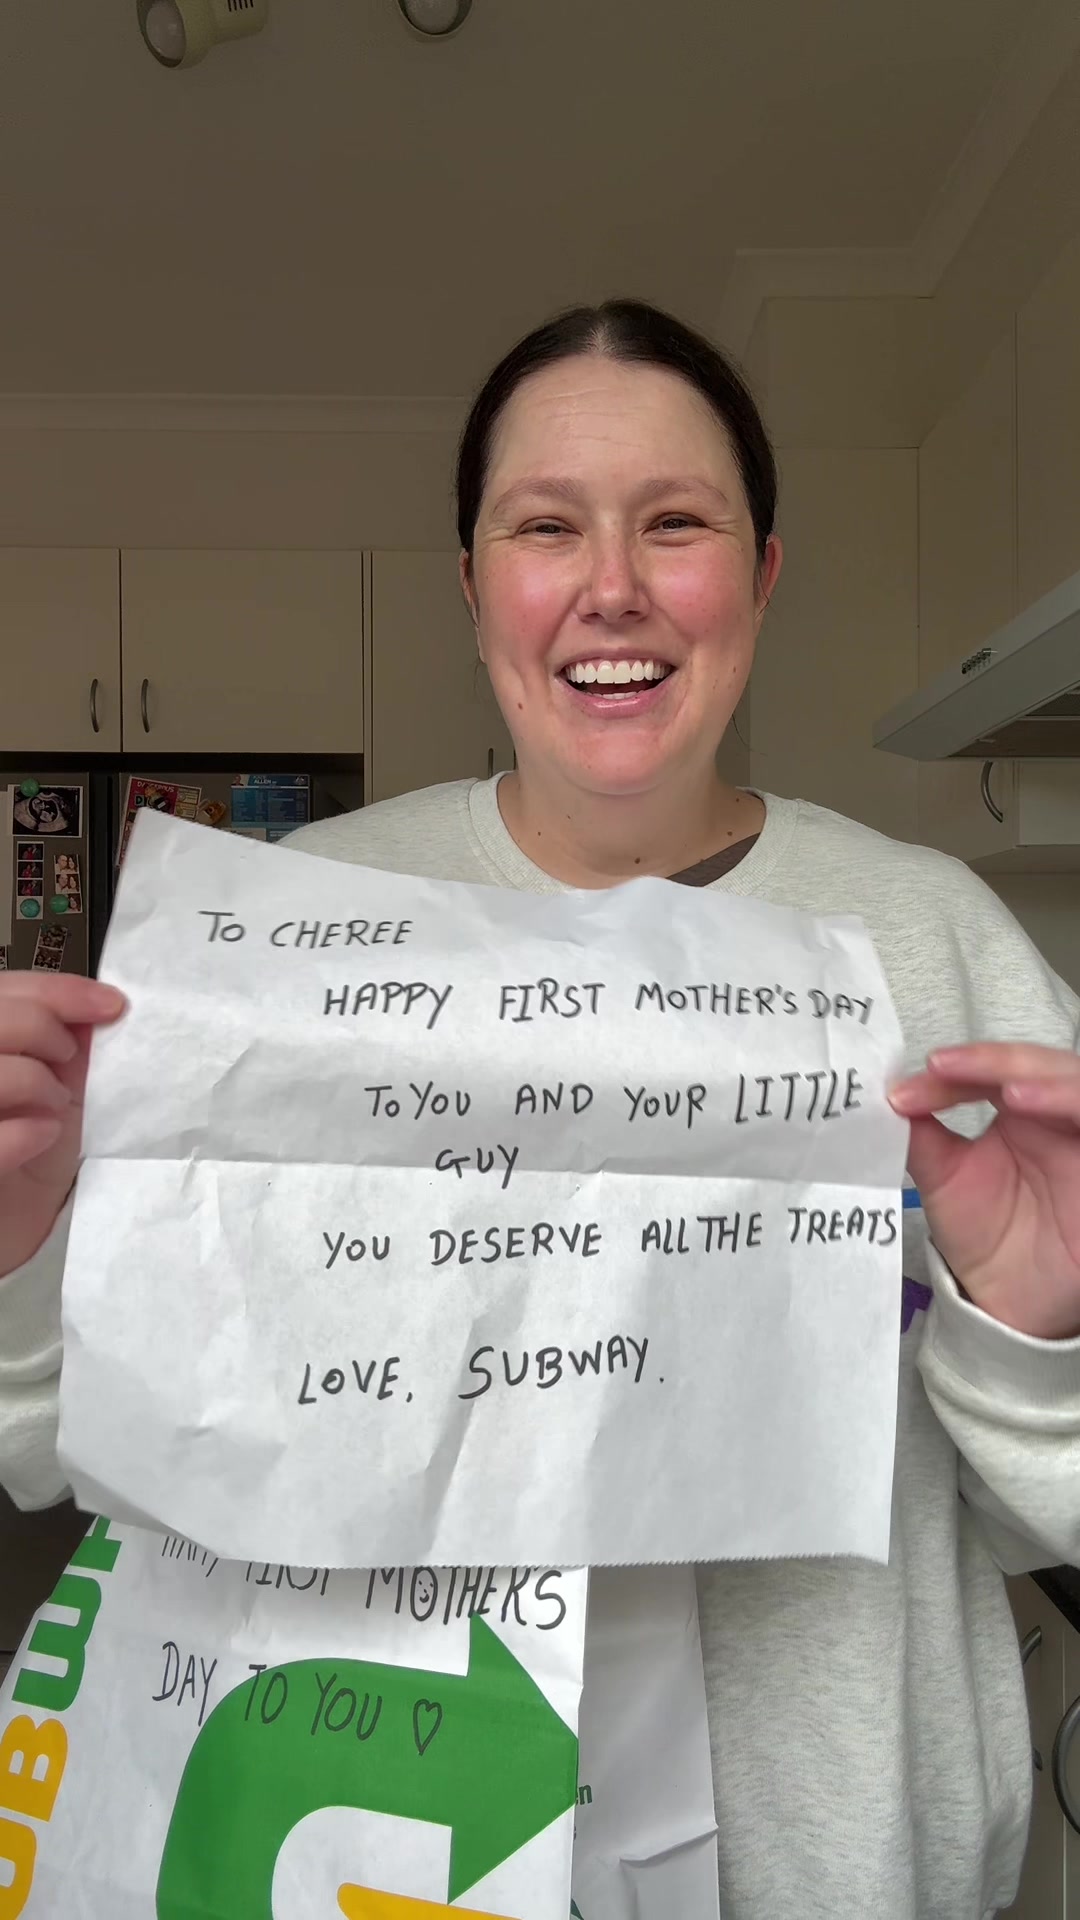 ALLEN
To CHEREE
HAPPY FIRST MOTHER'S DAY
To YOU AND YOUR LITTLE
GUY
YOU DESERVE ALL THE TREATS
LOVE, SUBWAY.
FIRST MOTHERS
DAY TO YOU ♡